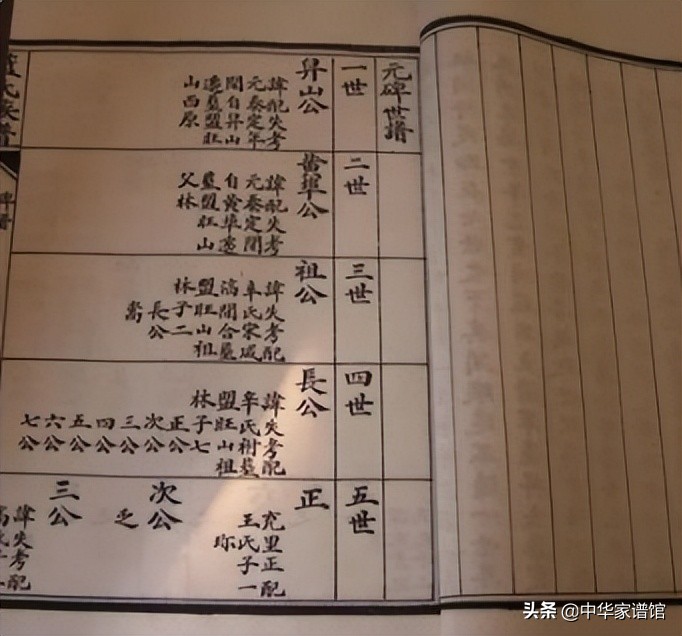 元碑世譜
一世
昇山公
諱配失考
元泰定年
間自昇山
遷墓盟旺
山西原
二世
黄埠公
諱配失考
元泰定間
自黄埠遷
墓盟旺山
父林
三世
祖公
諱失考配
氏宋咸
間合墓
盟旺山祖
林子二
長公
四世
長公
諱失考配
辛氏祔墓
盟旺山祖
林子七
正公
次公
三公
四公
五公
六公
七公
五世
正
充里正配
王氏子一
珎
次公
乏
三公
諱失考配
氏族譜
碑譜
头条 @中华家谱馆